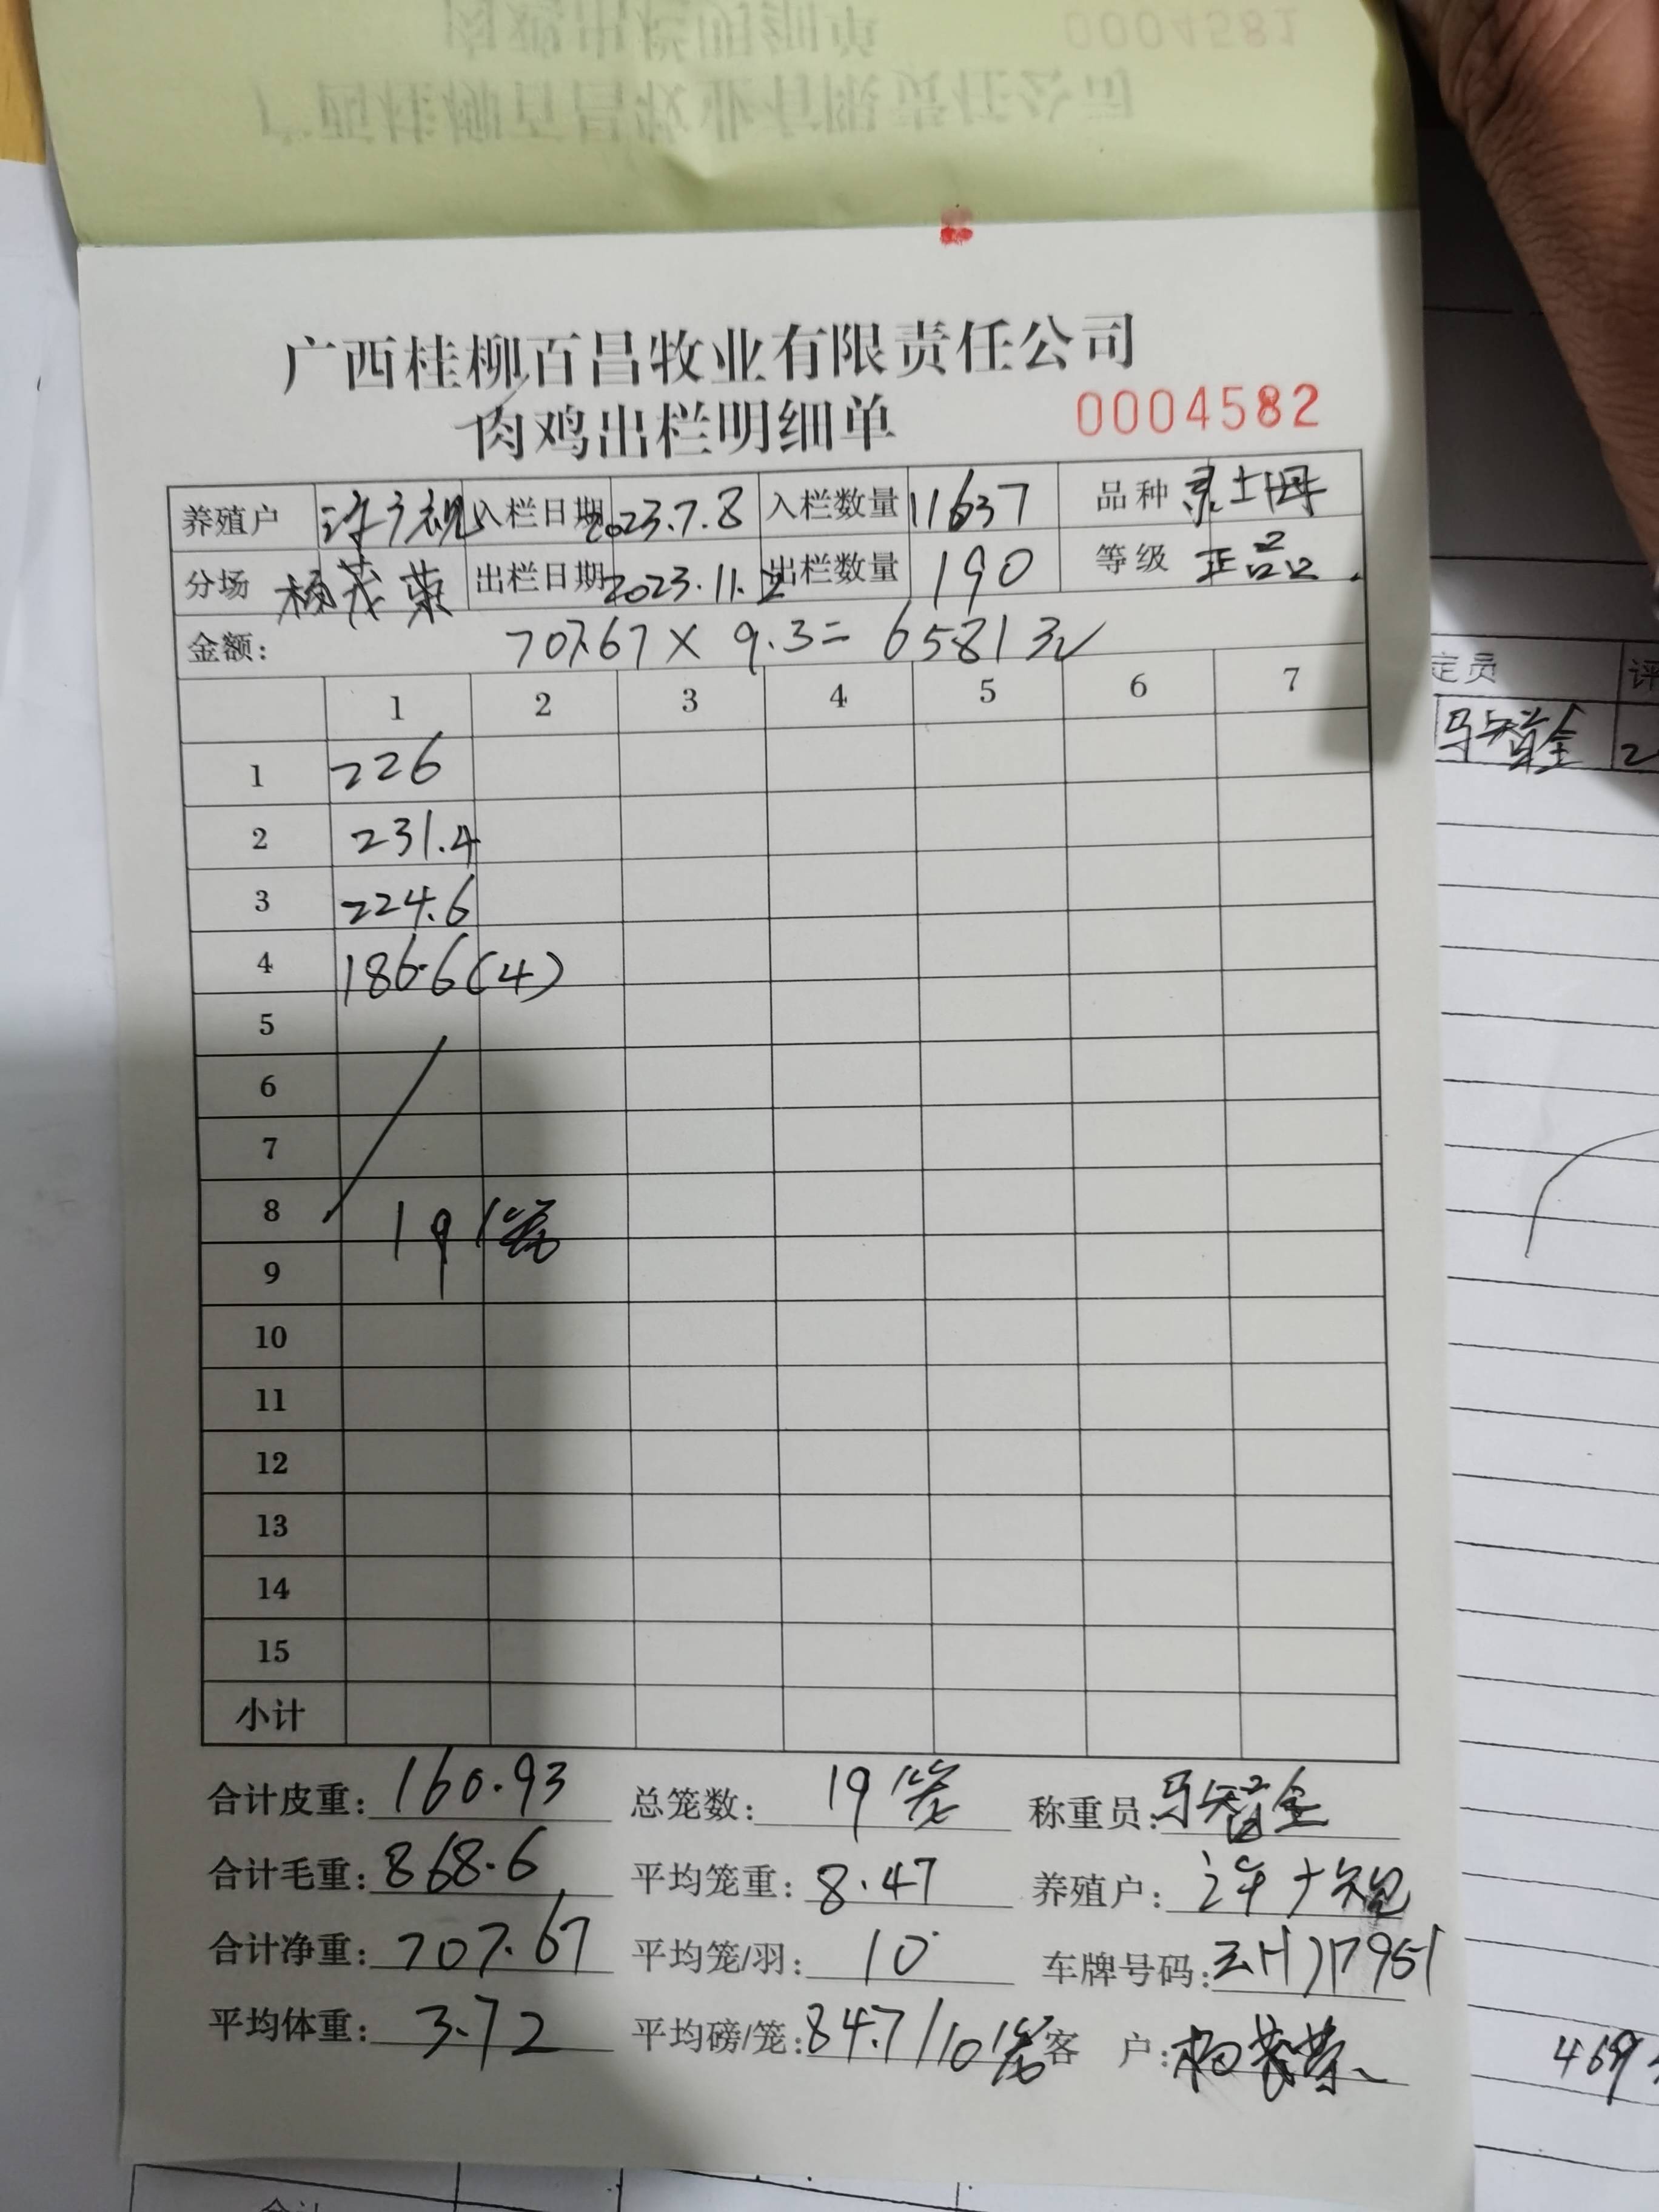 0004581
广西桂柳百昌牧业有限责任公司
肉鸡出栏明细单
广西桂柳百昌牧业有限责任公司
肉鸡出栏明细单 0004582
养殖户 入栏日期 2023.7.8 入栏数量 11637 品种
分场 杨茂荣 出栏日期 2023.11.2 出栏数量 190 等级 正品
金额: 707.67 × 9.3 = 6581元
1 2 3 4 5 6 7
1 226
2 231.4
3 224.6
4 186.6(4)
5
6
7
8 19笼
9
10
11
12
13
14
15
小计
合计皮重: 160.93 总笼数: 19笼 称重员: 马智金
合计毛重: 868.6 平均笼重: 8.47 养殖户:
合计净重: 707.67 平均笼/羽: 10 车牌号码:
平均体重: 3.72 平均磅/笼: 84.7/10笼 客 户: 杨茂荣
定员 评
马智金
469
合计